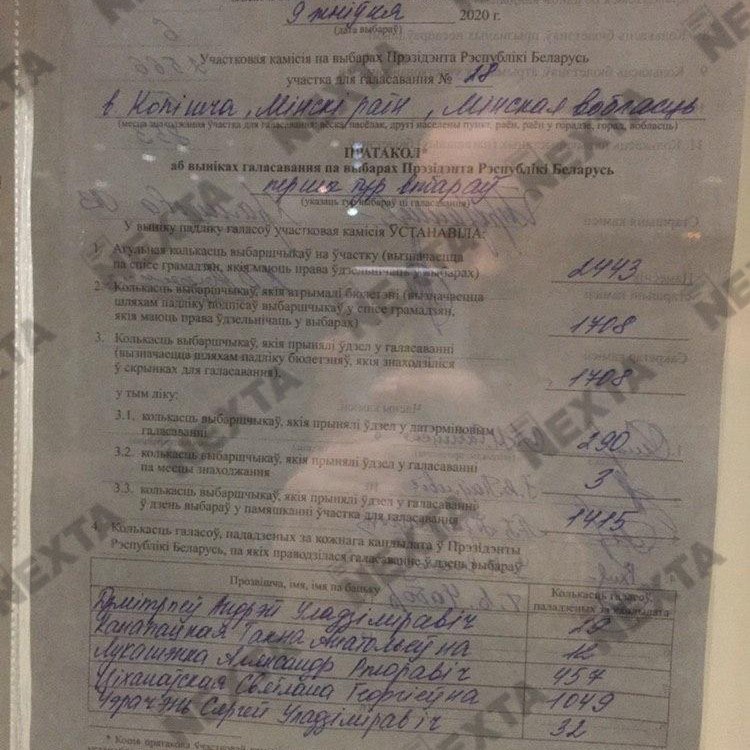 9 жніўня 2020 г.
(дата выбараў)
Участковая камісія па выбарах Прэзідэнта Рэспублікі Беларусь
участка для галасавання № 28
в Копішча, Мінскі раён, Мінская вобласць
(месца знаходжання участка для галасавання: вёска, пасёлак, другі населены пункт, раён, раён у горадзе, горад, вобласць)
ПРАТАКОЛ*
аб выніках галасавання па выбарах Прэзідэнта Рэспублікі Беларусь
першы тур выбараў
(указаць тур выбараў ці галасавання)
У выніку падліку галасоў участковая камісія ЎСТАНАВІЛА:
1. Агульная колькасць выбаршчыкаў на ўчастку (вызначаецца
па спісе грамадзян, якія маюць права ўдзельнічаць у выбарах) 2443
2. Колькасць выбаршчыкаў, якія атрымалі бюлетэні (вызначаецца
шляхам падліку подпісаў выбаршчыкаў у спісе грамадзян,
якія маюць права ўдзельнічаць у выбарах) 1708
3. Колькасць выбаршчыкаў, якія прынялі ўдзел у галасаванні
(вызначаецца шляхам падліку бюлетэняў, якія знаходзіліся
ў скрынках для галасавання), 1708
у тым ліку:
3.1. колькасць выбаршчыкаў, якія прынялі ўдзел у датэрміновым
галасаванні 290
3.2. колькасць выбаршчыкаў, якія прынялі ўдзел у галасаванні
па месцы знаходжання 3
3.3. колькасць выбаршчыкаў, якія прынялі ўдзел у галасаванні
ў дзень выбараў у памяшканні ўчастка для галасавання 1415
4. Колькасць галасоў, пададзеных за кожнага кандыдата ў Прэзідэнты
Рэспублікі Беларусь, па якіх праводзілася галасаванне ў дзень выбараў
Прозвішча, імя, імя па бацьку Колькасць галасоў,
пададзеных за кандыдата
Дмитрыеў Андрэй Уладзіміравіч 29
Канапацкая Ганна Анатольеўна 12
Лукашэнка Аляксандр Рыгоравіч 457
Ціханоўская Святлана Георгіеўна 1049
Чэрачэнь Сяргей Уладзіміравіч 32
* Копія пратакола ўчастковай
NEXTA